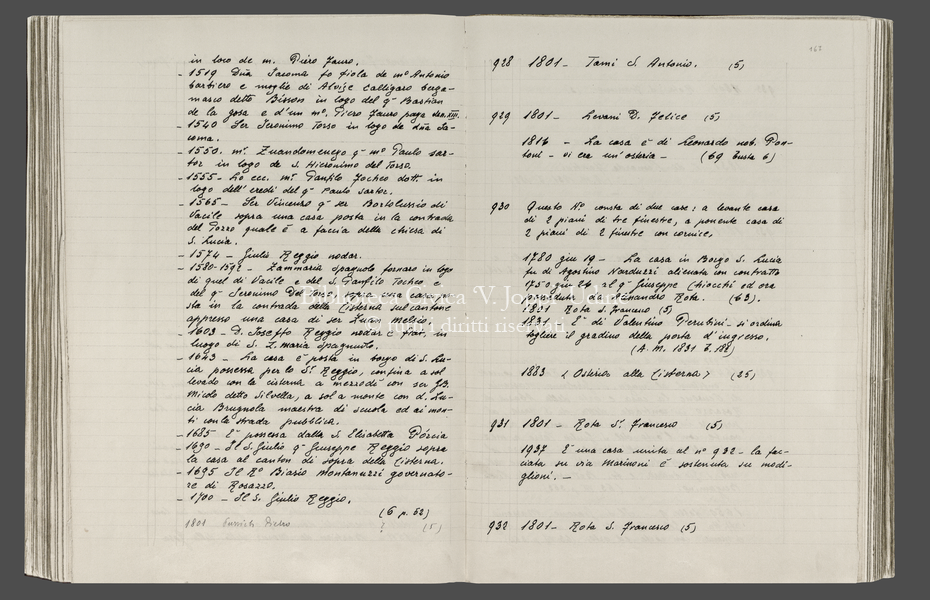 in loco de m. Piero Zauro.
- 1519 Dña Jacoma fo fiola de mº Antonio
barbiero e moglie di Alvize calligaro berga-
masco detto Bisson in logo del qº Bastian
de la gosa e d'un mº. Piero Zauro paga
- 1540 Ser Jeronimo Torso in logo de dña Ja-
coma.
- 1550. mº. Zuandomenego qº mº Paulo sar-
tor in logo de S. Hieronimo del Torso.
- 1555 - Lo ecc. mº. Panfilo Tocheo dott. in
logo dell'eredi del qº Paulo sartor.
- 1565 - Ser Vincenzo qº ser Bortolussio di
Vacile sopra una casa posta in la contrada
del Pozzo quale è a faccia della chiesa di
S. Lucia.
- 1574 - Giulio Reggio nodar.
- 1580-1592 - Zammaria Spagnolo fornaro in logo
di quel di Vacile e del S. Panfilo Tocheo
del qº Jeronimo Del Torso, sopra una casa po-
sta in la contrada della Cisterna sul cantone
appresso una casa di ser Zuan Melsio.
- 1603 - D. Joseffo Reggio nodar e frat. in
luogo di S. Z. Maria Spagnuolo.
- 1643 - La casa è posta in borgo di S. Lu-
cia possessa per lo Sr. Reggio, confina a sol
levado con la cisterna a mezzodì con ser GB.
Micolo detto Silvella, a sol a monte con d. Lu-
cia Brugnola maestra di scuola ed ai mon-
ti con la strada pubblica.
- 1685 È possessa dalla S. Elisabetta Pórcia
- 1690 - Il S. Giulio qº Giuseppe Reggio sopra
la casa al canton di sopra della Cisterna.
- 1695 Il Rº Biasio Montanuzzi governato-
re di Rosazzo.
- 1700 - Il S. Giulio Reggio.
(6 p. 52)
1801 Pietro ? (5)
162
928 1801 - Tami S. Antonio. (5)
929 1801 - Levani D. Felice (5)
1816 - La casa è di Leonardo nob. Don-
toni - vi era un'osteria - (69 busta 6)
930 Questo Nº consta di due case: a levante casa
di 2 piani di tre finestre, a ponente casa di
2 piani di 2 finestre con cornice,
1780 giu 19 - La casa in Borgo S. Lucia
fu di Agostino Narduzzi alienata con contratto
1750 giu 24 al qº Giuseppe Chiocchi ed ora
posseduta da Alessandro Rota. (63).
1801 Rota S. Francesco (5)
1831 - È di Valentino Perutini - si ordina
togliere il gradino della porta d'ingresso.
(A. M. 1831 b. 188)
1883 < Osteria alla Cisterna > (25)
931 1801 - Rota Sr. Francesco (5)
1937 È una casa unita al nº 932 - la fac-
ciata su via Marinoni è sostenuta su modi-
glioni. -
932 1801 - Rota S. Francesco (5)
Biblioteca Civica 'V. Joppi' Udine
© tutti i diritti riservati